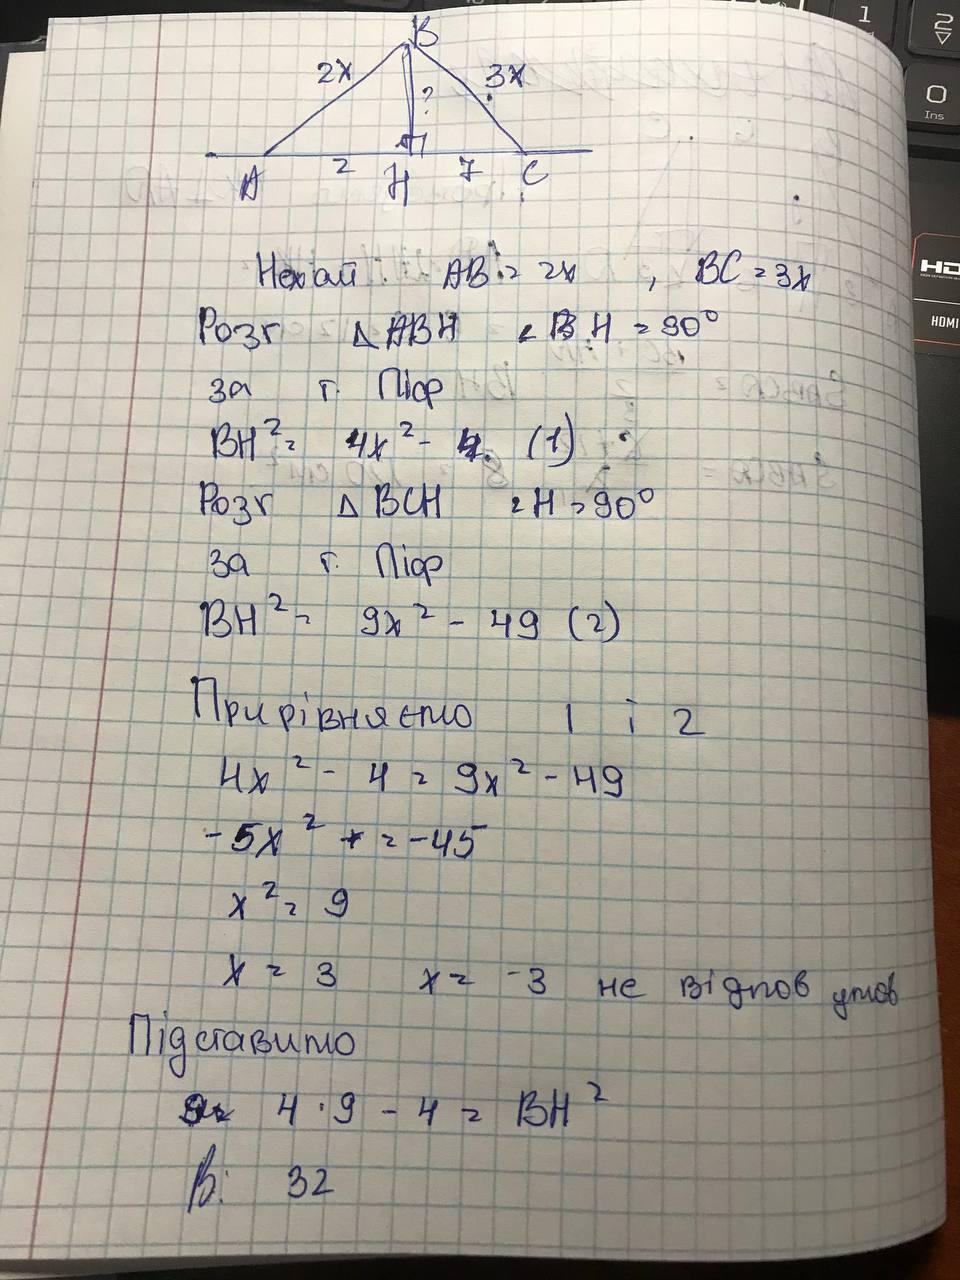 B
2x
3x
?
A
2
H
7
C
Нехай AB = 2x , BC = 3x
Розг △ ABH ∠ H = 90°
за т. Піф
BH² = 4x² - 4 (1)
Розг △ BCH ∠ H = 90°
за т. Піф
BH² = 9x² - 49 (2)
Прирівняємо 1 і 2
4x² - 4 = 9x² - 49
-5x² = -45
x² = 9
x = 3 x = -3 не відпов умов
Підставимо
4 · 9 - 4 = BH²
В: 32
1
2
0
Ins
HD
HDMI